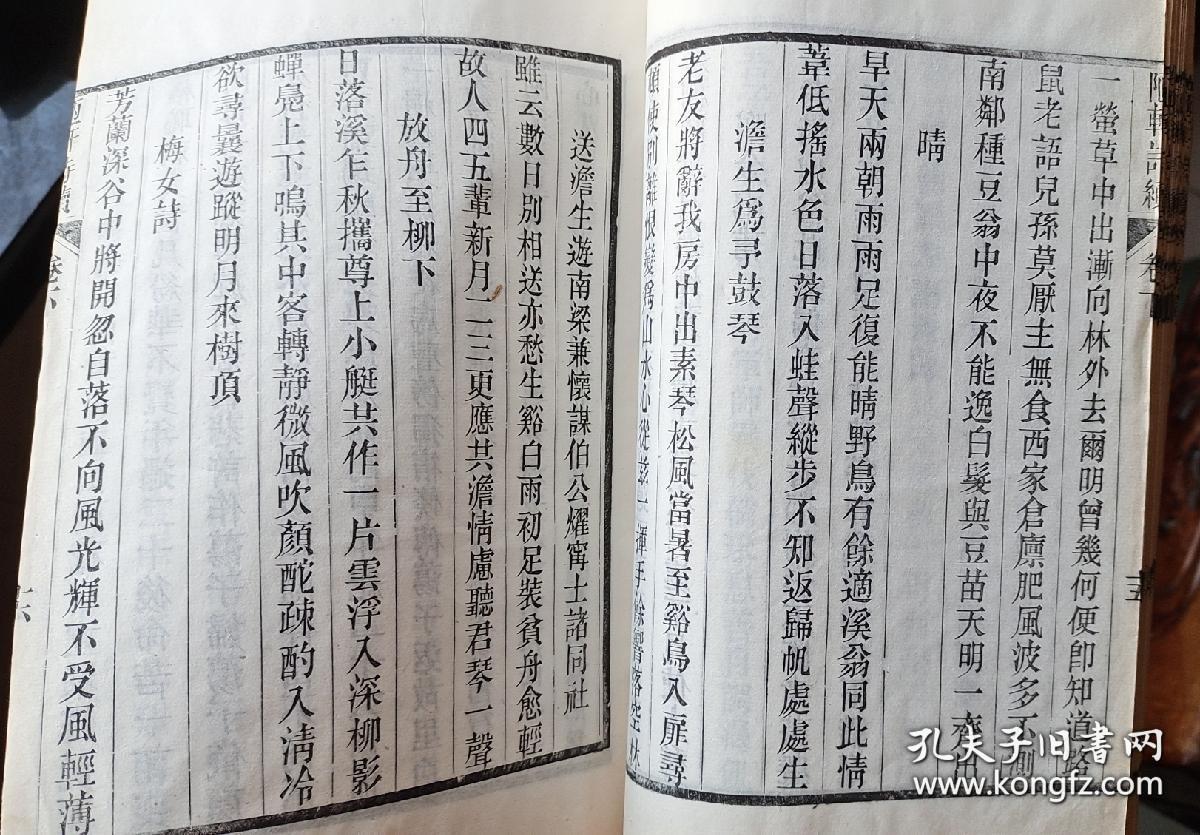 一螢草中出漸向林外去爾明曾幾何便卽知道
鼠老語兒孫莫厭主無食西家倉廪肥風波多不測
南鄰種豆翁中夜不能逸白髮與豆苗天明一齊
晴
旱天兩朝雨雨足復能晴野鳥有餘適溪翁同此情
葦低搖水色日落入蛙聲縱步不知返歸帆處處生
澹生爲寻鼓琴
老友將辭我房中出素琴松風當暑至谿鳥入扉尋
山水心從
送澹生遊南梁兼懷謀伯公燿甯士諸同社
雖云數日別相送亦愁生谿白雨初足裝貧舟愈輕
故人四五輩新月二三更應共澹情慮聽君琴一聲
放舟至柳下
日落溪乍秋攜尊上小艇共作一片雲浮入深柳影
蟬鳧上下鳴其中客轉靜微風吹顏酡疎酌入清冷
欲尋曩遊蹤明月來樹頂
梅女詩
芳蘭深谷中將開忽自落不向風光輝不受風輕薄
卷六
十六
孔夫子旧書网
www.kongfz.com